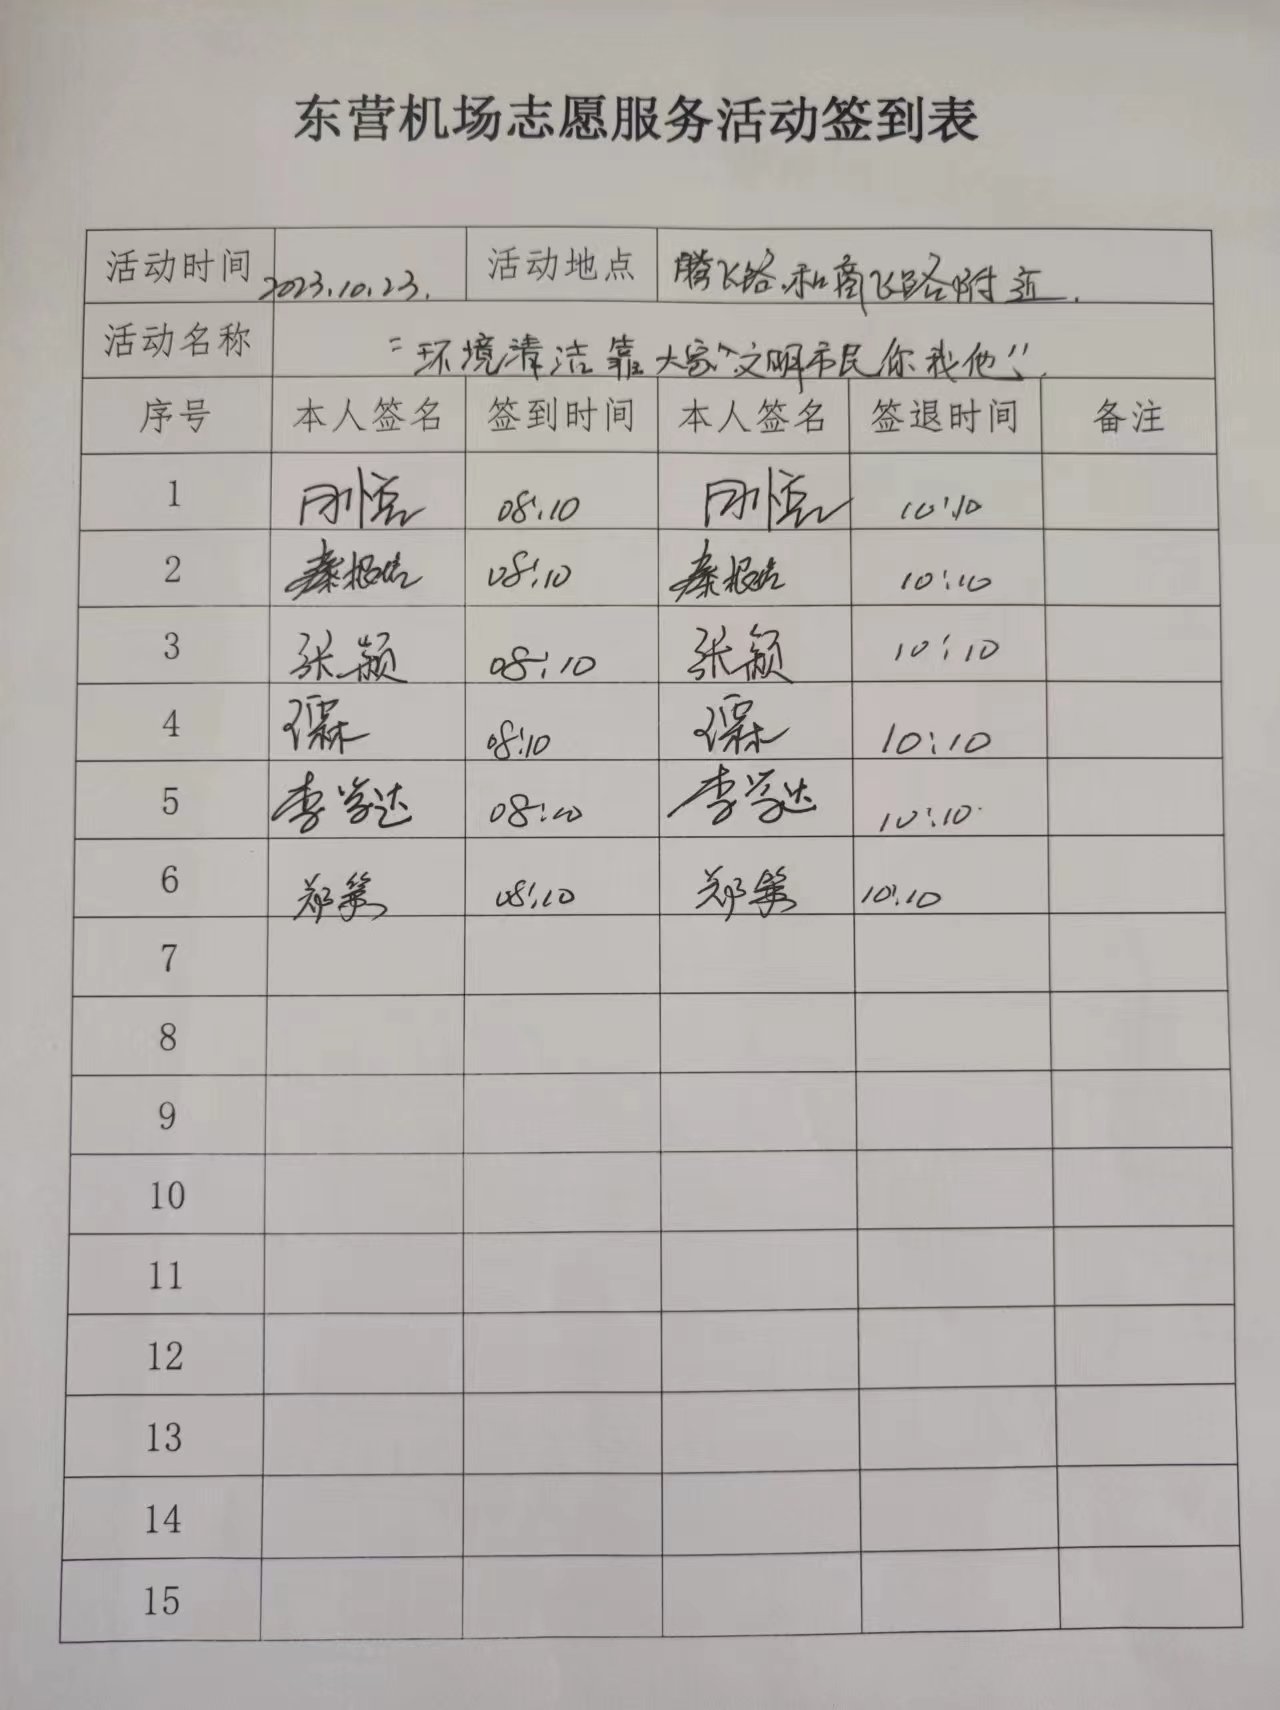 东营机场志愿服务活动签到表
活动时间 2023.10.23. 活动地点 腾飞路和商飞路附近.
活动名称 "环境清洁靠大家""文明市民你我他".
序号 本人签名 签到时间 本人签名 签退时间 备注
1 08:10 10:10
2 08:10 10:10
3 张颖 08:10 张颖 10:10
4 08:10 10:10
5 李学达 08:10 李学达 10:10
6 郑第 08:10 郑第 10:10
7
8
9
10
11
12
13
14
15